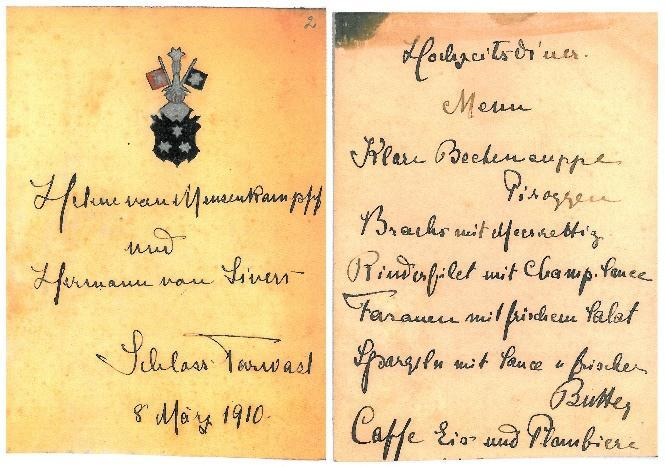 2
Helene von Mensenkampff
und
Hermann von Sivers
Schloss Tarwast
8 März 1910.
Hochzeitsdiner.
Menu
Klare Beetensuppe
Piroggen
Brachs mit Meerrettig
Rinderfilet mit Champ. Sauce
Fasanen mit frischem Salat
Spargeln mit Sauce u frischer
Butter
Caffe Eis und Plombiere